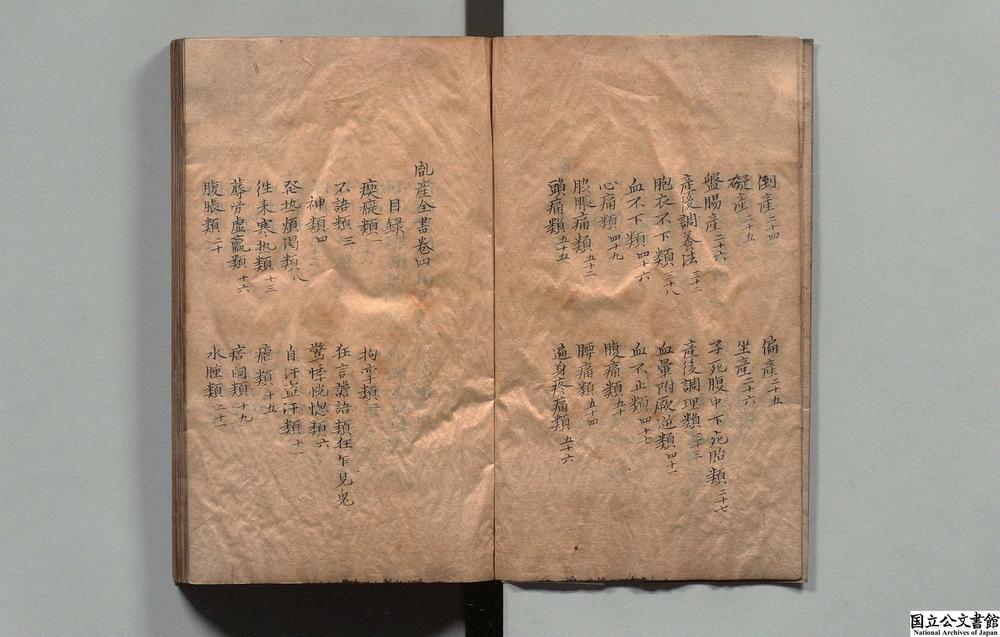 倒産二十四 偏産二十五
礙産二十五 坐産二十六
盤腸産二十六 子死腹中下死胎類二十七
産後調養法三十二 産後調理類三十三
胞衣不下類三十八 血暈附厥逆類四十一
血不下類四十六 血不止類四十七
心痛類四十九 腹痛類五十
脇脹痛類五十二 腰痛類五十四
頭痛類五十五 遍身疼痛類五十六
胤産全書卷四
目録
瘈瘲類一 拘攣類二
不語類三 狂言譫語類狂乍見鬼
神類四 驚悸恍惚類六
發热煩渴類八 自汗盗汗類十一
徃来寒热類十三 瘧類十五
蓐労虚羸類十六 痞悶類十九
腹脹類二十 水腫類二十一
国立公文書館
National Archives of Japan